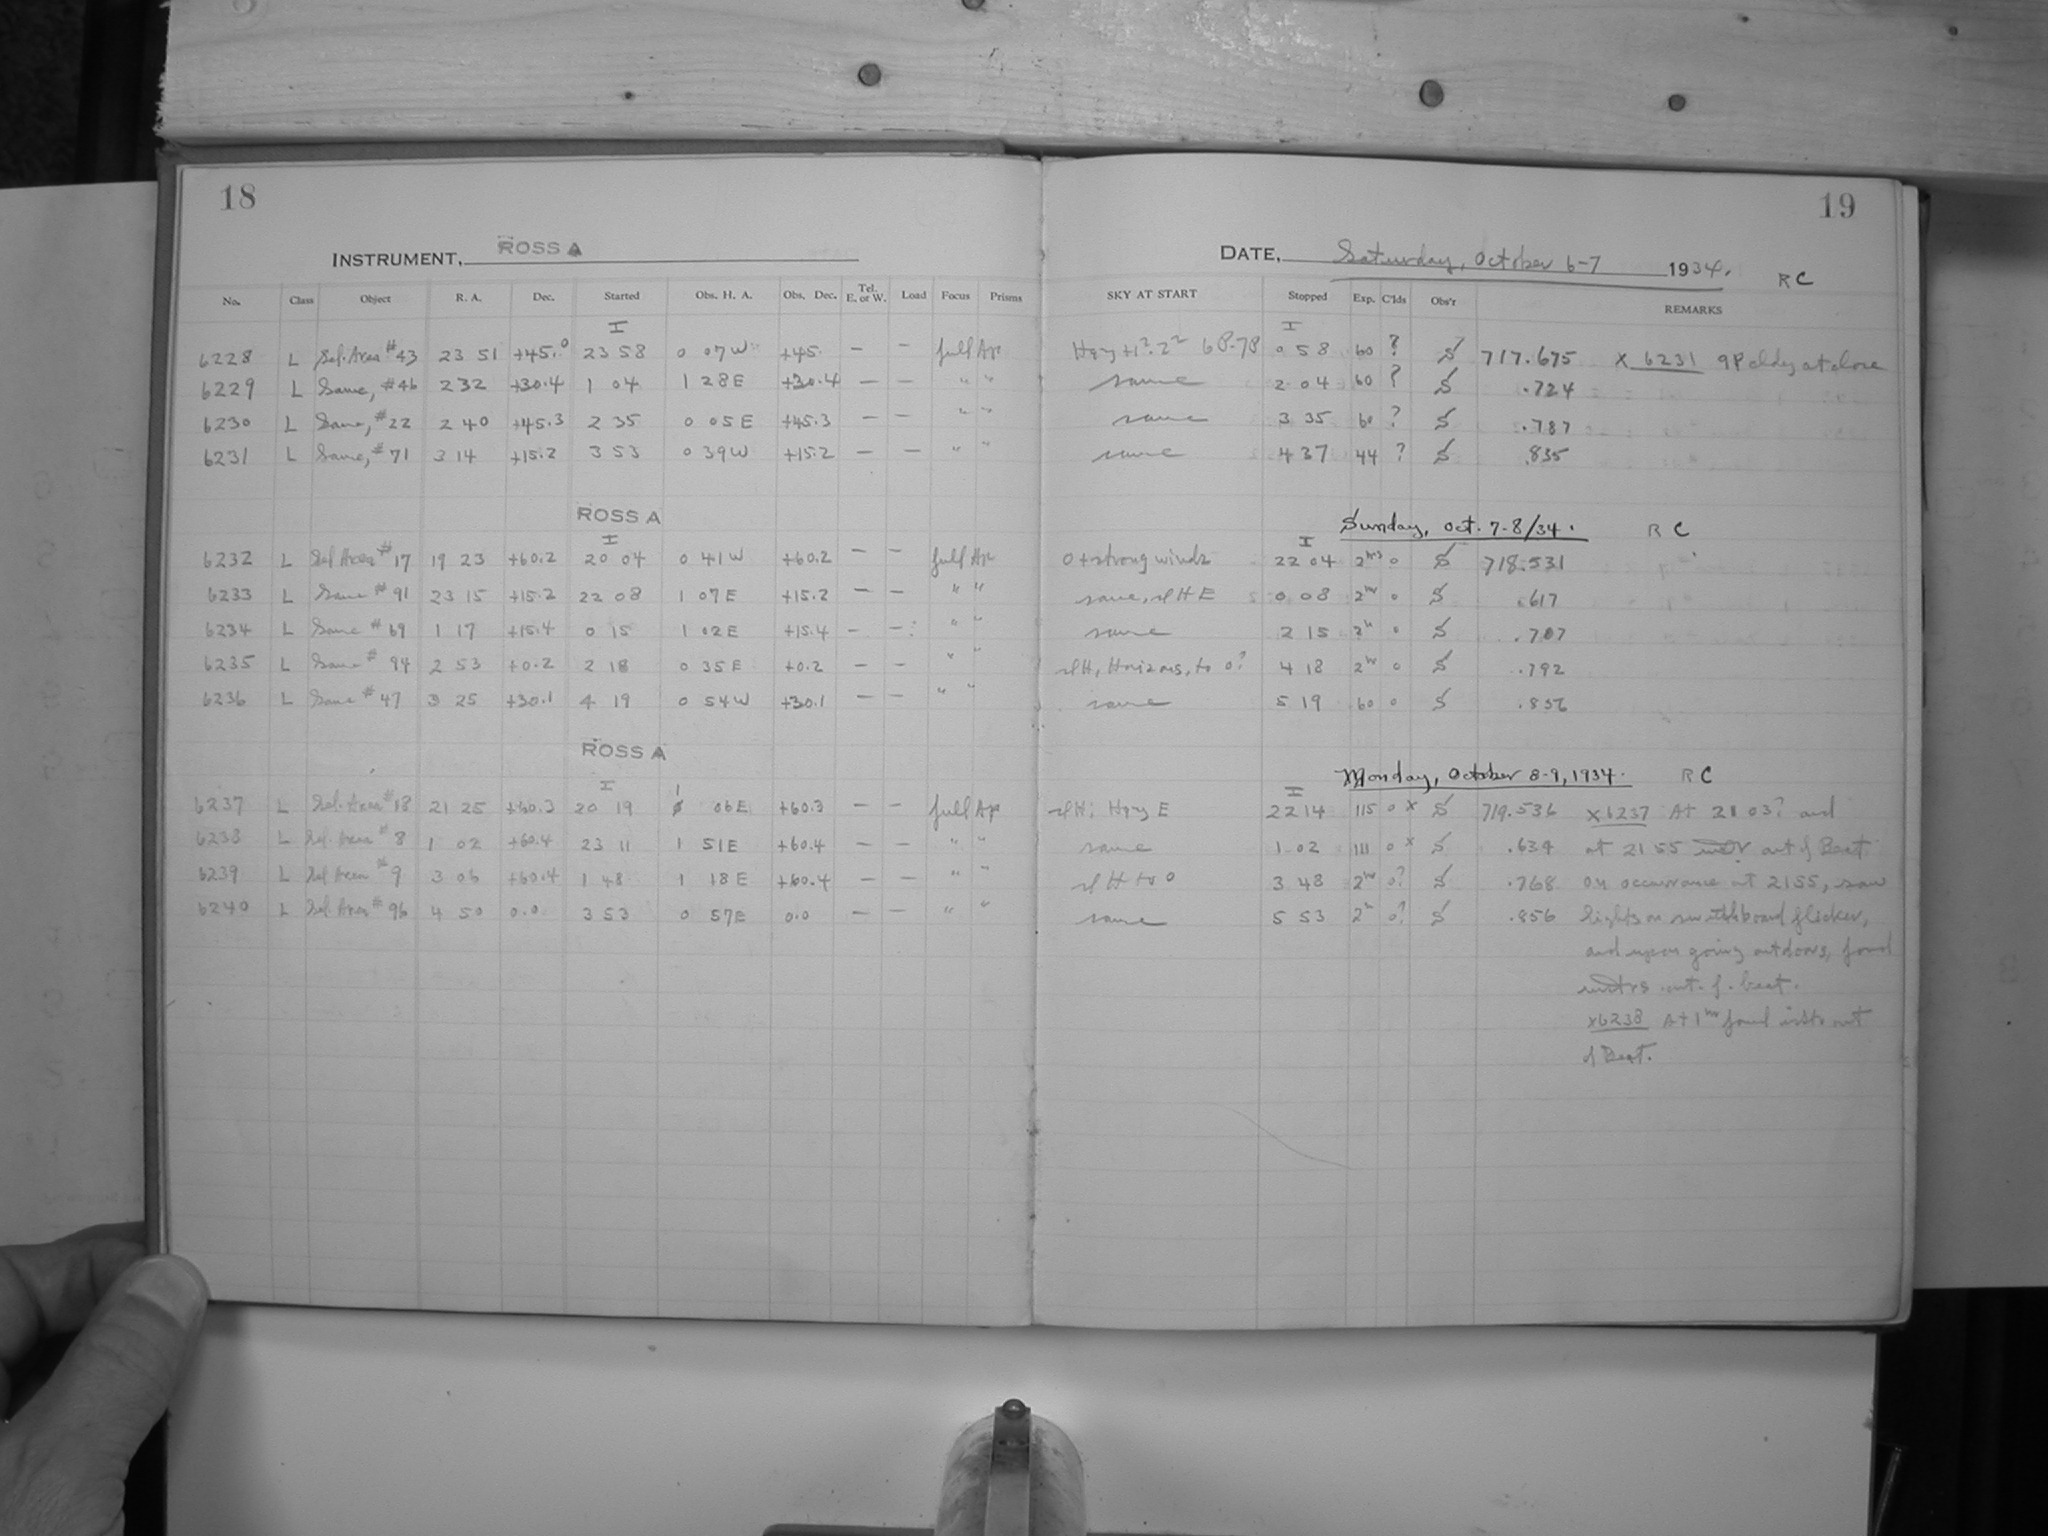 18
INSTRUMENT, ROSS A
No. Class Object R. A. Dec. Started Obs. H. A. Obs. Dec. Tel. E. or W. Load Focus Prisms
I
6228 L Sel. Area #43 23 51 +45.0 23 58 0 07W +45. — — full Ap
6229 L Same, #46 2 32 +30.4 1 04 1 28E +30.4 — — " "
6230 L Same, #22 2 40 +45.3 2 35 0 05E +45.3 — — " "
6231 L Same, #71 3 14 +15.2 3 53 0 39W +15.2 — — " "
ROSS A
I
6232 L Sel Area #17 19 23 +60.2 20 04 0 41W +60.2 — — full Ap
6233 L Same #91 23 15 +15.2 22 08 1 07E +15.2 — — " "
6234 L Same #69 1 17 +15.4 0 15 1 02E +15.4 — — " "
6235 L Same # 94 2 53 +0.2 2 18 0 35E +0.2 — — " "
6236 L Same #47 3 25 +30.1 4 19 0 54W +30.1 — — " "
ROSS A
I
6237 L Sel. Area #18 21 25 +60.3 20 19 1 06E +60.3 — — full Ap
6238 L Sel. Area #8 1 02 +60.4 23 11 1 51E +60.4 — — " "
6239 L Sel Area #9 3 06 +60.4 1 48 1 18E +60.4 — — " "
6240 L Sel. Area #96 4 50 0.0 3 53 0 57E 0.0 — — " "
19
DATE, Saturday, October 6-7 1934. RC
SKY AT START Stopped Exp. C'lds Obs'r REMARKS
I
Hzy 0 58 60 ? S 717.675 x 6231 9P cldy at close
same 2 04 60 ? S .724
same 3 35 60 ? S .787
same 4 37 44 ? S .835
Sunday, Oct. 7-8/34. RC
I
0 + strong winds 22 04 2hrs 0 S 718.531
same, sl H E 0 08 2hr 0 S .617
same 2 15 2h 0 S .707
sl H, Horizons, to 0? 4 18 2hr 0 S .792
same 5 19 60 0 S .856
Monday, October 8-9, 1934. RC
I
sl H; Hzy E 22 14 115 0 x S 719.536 x6237 At 21 03? and
same 1 02 111 0 x S .634 at 21 55 out of Beat
sl H to 0 3 48 2hr 0? S .768 on occurrance at 2155, saw
same 5 53 2h 0? S .856 lights on switchboard flicker,
and upon going outdoors, found
out of beat.
x6238 At 1hr found instr out
of Beat.